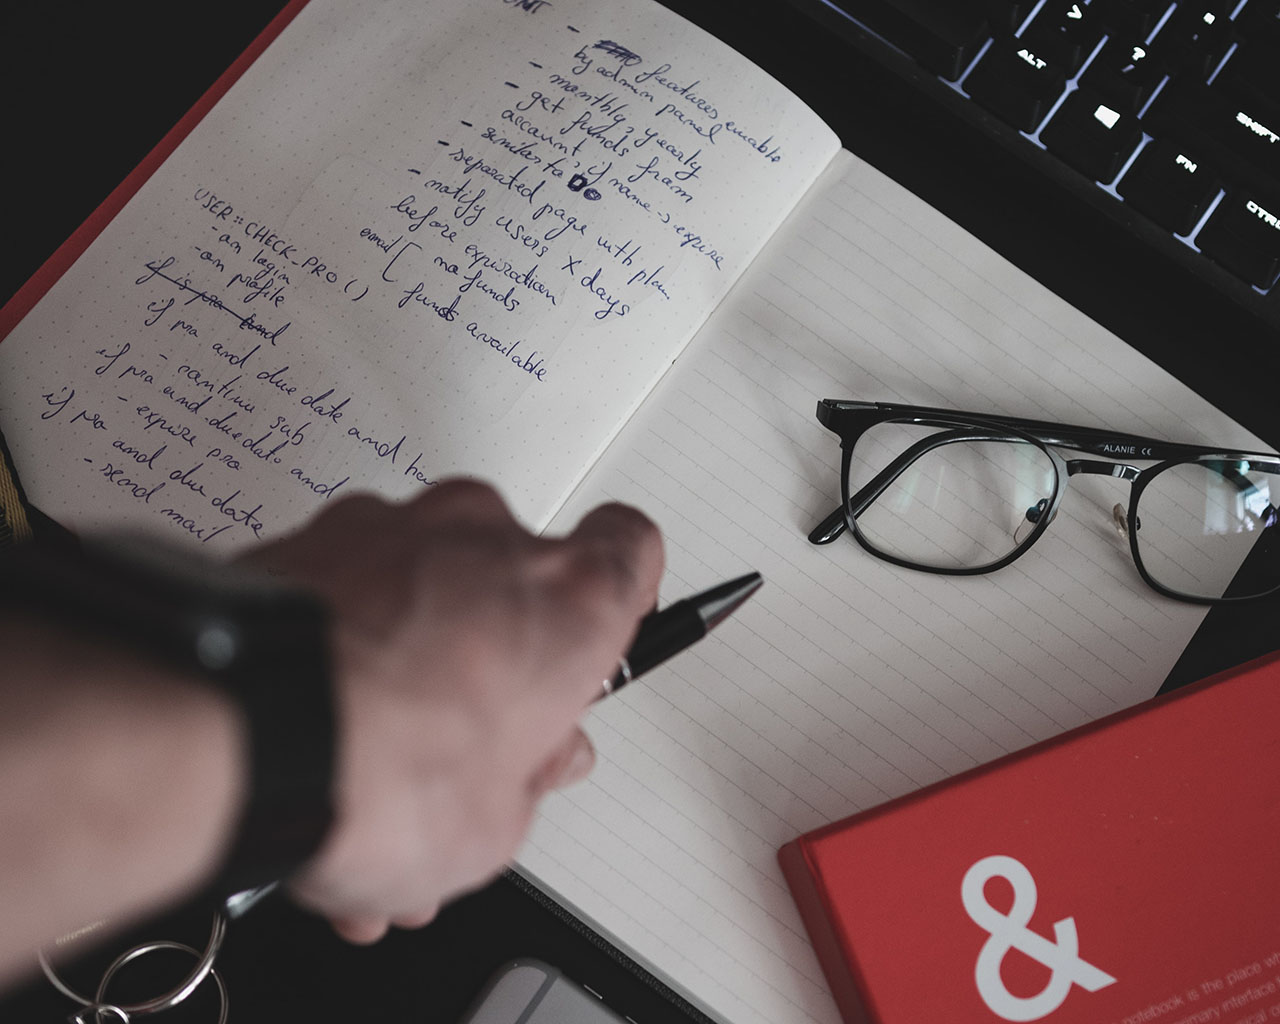 - features enable
by admin panel
- monthly, yearly
- get funds from
account, if name > expire
- similar to DO
- separated page with plan.
- notify users X days
before expiration
email [ no funds
funds available
USER::CHECK_PRO()
- on login
- on profile
if is pro and
if pro and due date and
- continue sub
if pro and due date and
- expire pro
if pro and due date
- send mail
V
?
ALT
SHIFT
FN
ALANIE CE
&
notebook is the place
interface